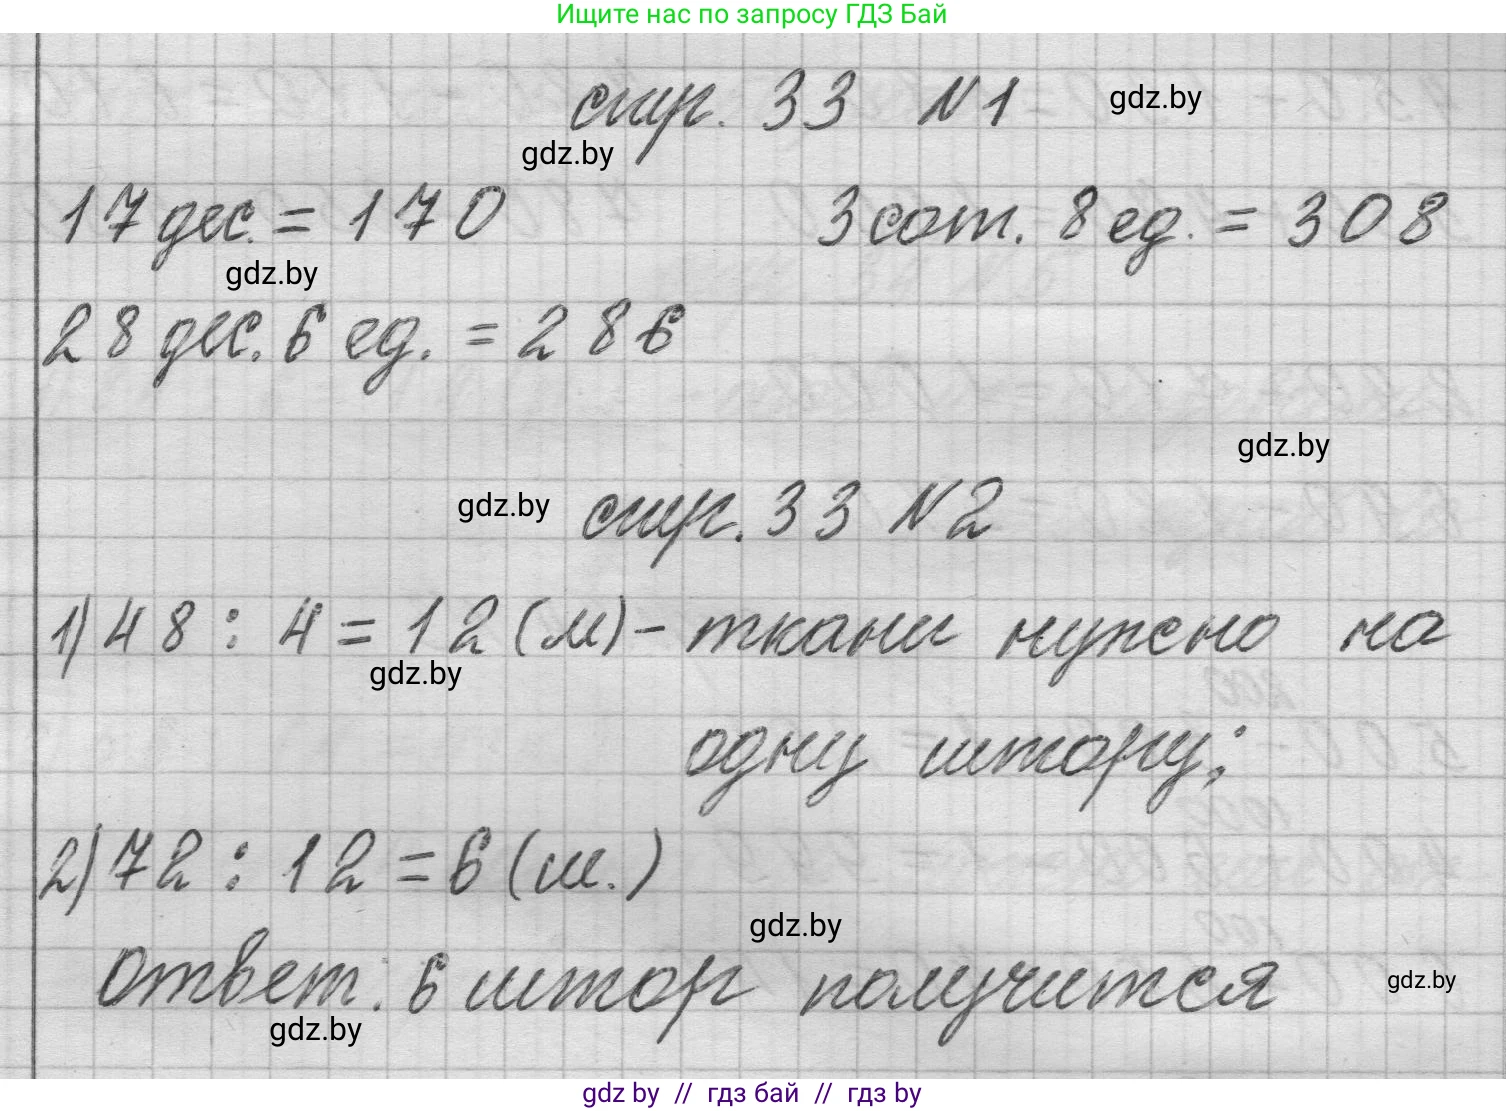 Ищите нас по запросу ГДЗ Бай
стр. 33 N1 gdz.by
gdz.by
17 дес. = 170 3 сот. 8 ед. = 308
gdz.by
28 дес. 6 ед. = 286
gdz.by
gdz.by стр. 33 N2
1) 48 : 4 = 12 (м) - ткани нужно на
gdz.by
одну штору;
2) 72 : 12 = 6 (ш.)
gdz.by
Ответ: 6 штор получится gdz.by
gdz.by
gdz by // гдз бай // гдз by